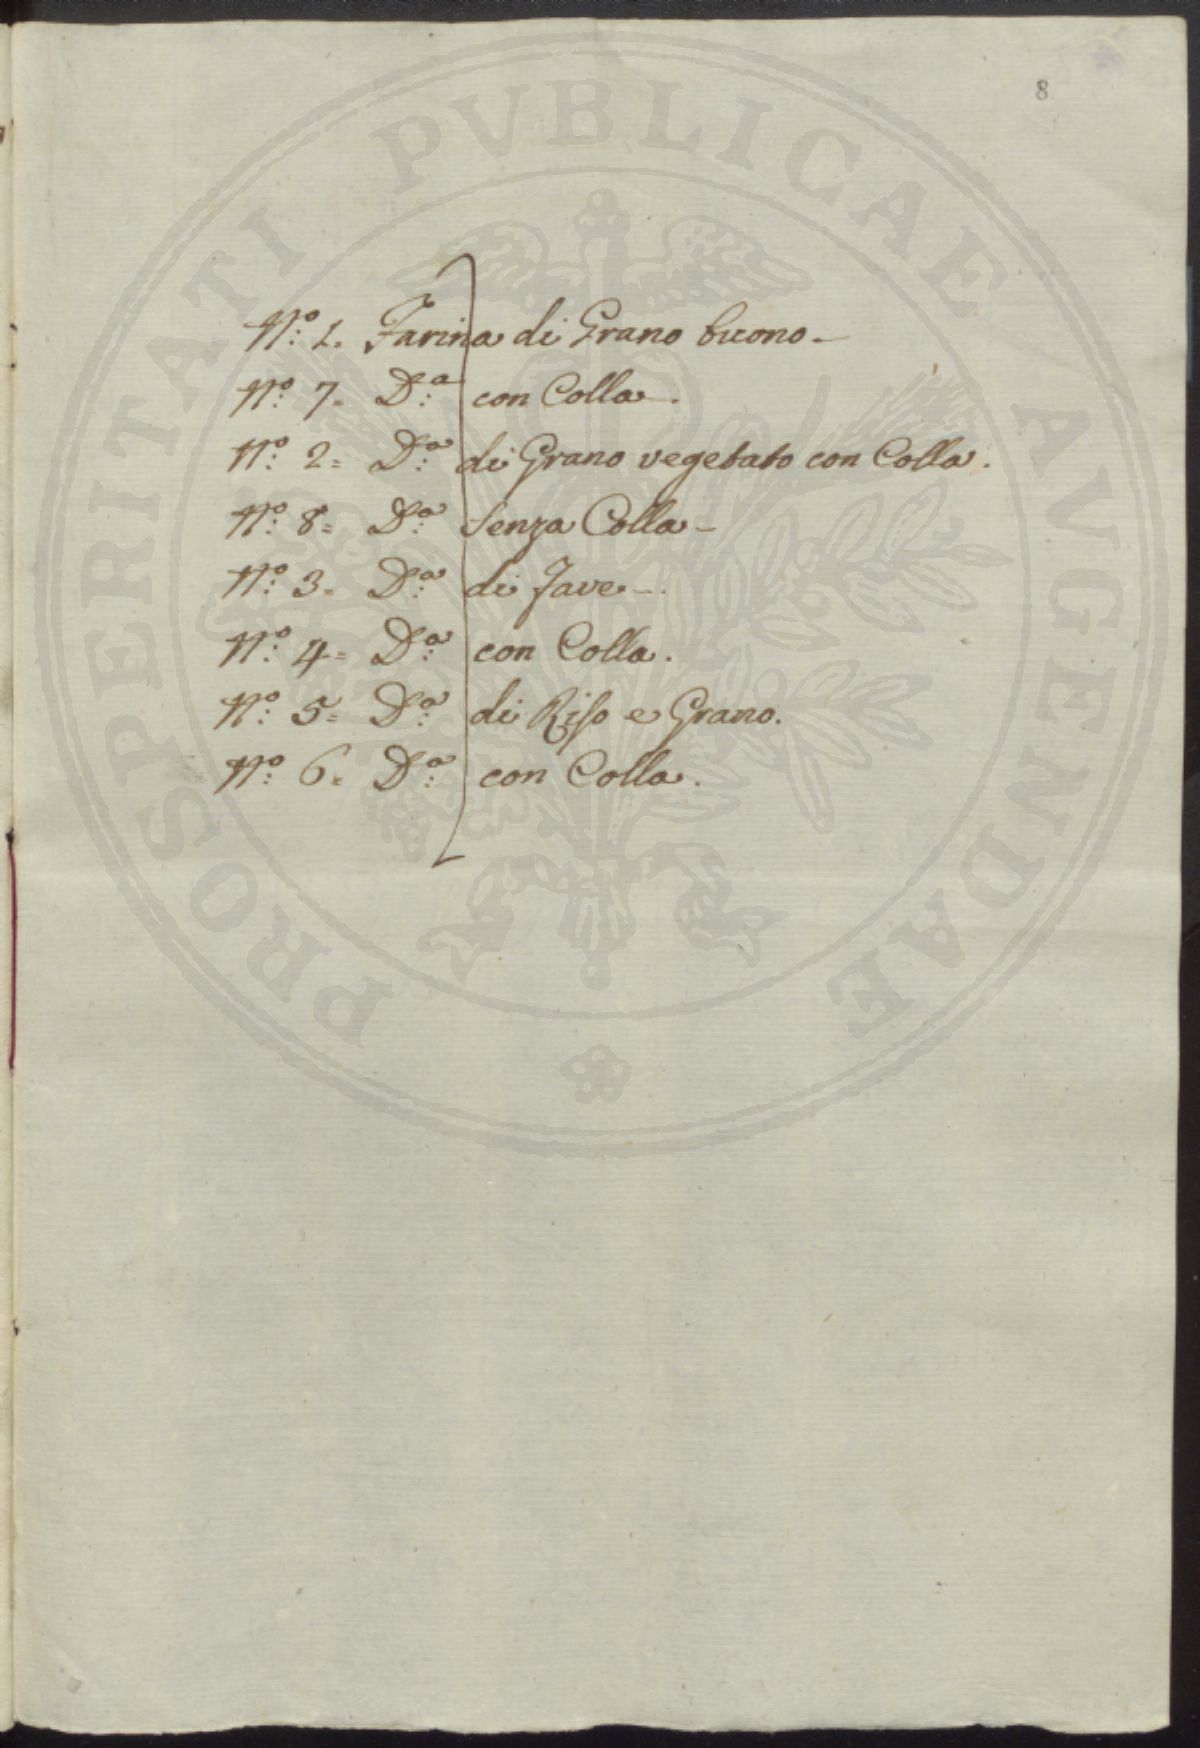 8
N.º 1. Farina di Grano buono.
N.º 7. D.ª con Colla.
N.º 2. D.ª di Grano vegetato con Colla.
N.º 8. D.ª senza Colla
N.º 3. D.ª di Fave.
N.º 4. D.ª con Colla.
N.º 5. D.ª di Riso e Grano.
N.º 6. D.ª con Colla.
PROSPERITATI PVBLICAE AVGENDAE